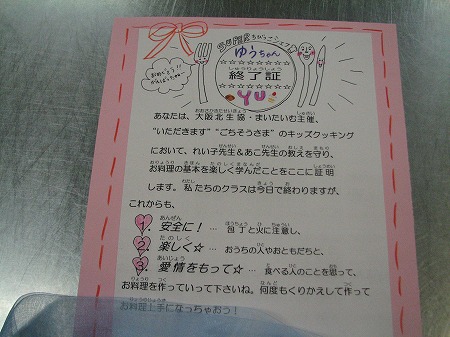 SUPERちびっこシェフ!!
ゆうちゃん
☆☆☆☆☆☆☆☆
しゅうりょうしょう
終了証
☆☆☆☆☆☆☆☆
YU
おめでとう!!
がんばったね〜
あなたは、大阪北生協・まいたいむ主催、
"いただきます""ごちそうさま"のキッズクッキング
において、れい子先生＆あこ先生の教えを守り、
お料理の基本を楽しく学んだことをここに証明
します。私たちのクラスは今日で終わりますが、
これからも、
1. 安全に！ … 包丁と火に注意し、
2. 楽しく☆ … おうちの人やおともだちと、
3. 愛情をもって☆ … 食べる人のことを思って、
お料理を作っていって下さいね。何度もくりかえして作って
お料理上手になっちゃおう！